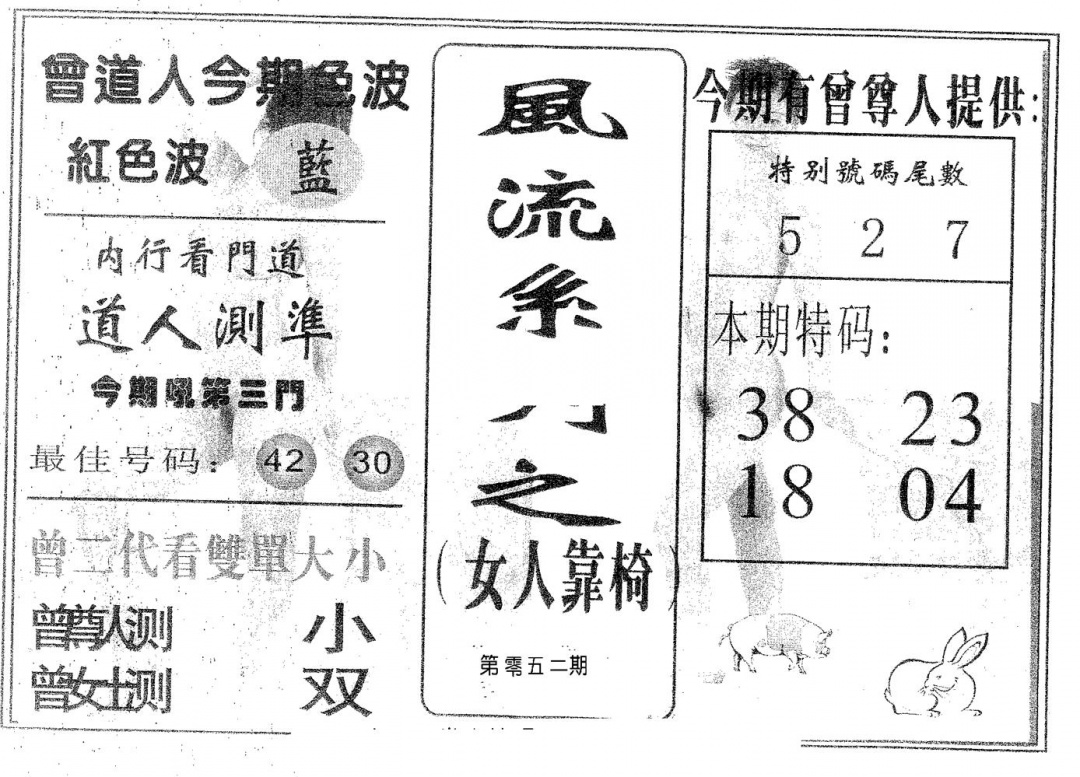 曾道人今期色波
紅色波 藍
内行看門道
道人測準
今期吼第三門
最佳号码： 42 30
曾二代看雙單大小
曾尊人测 小
曾女士测 双
風
流
系
之
（女人靠椅）
第零五二期
今期有曾尊人提供：
特别號碼尾數
5 2 7
本期特码：
38 23
18 04